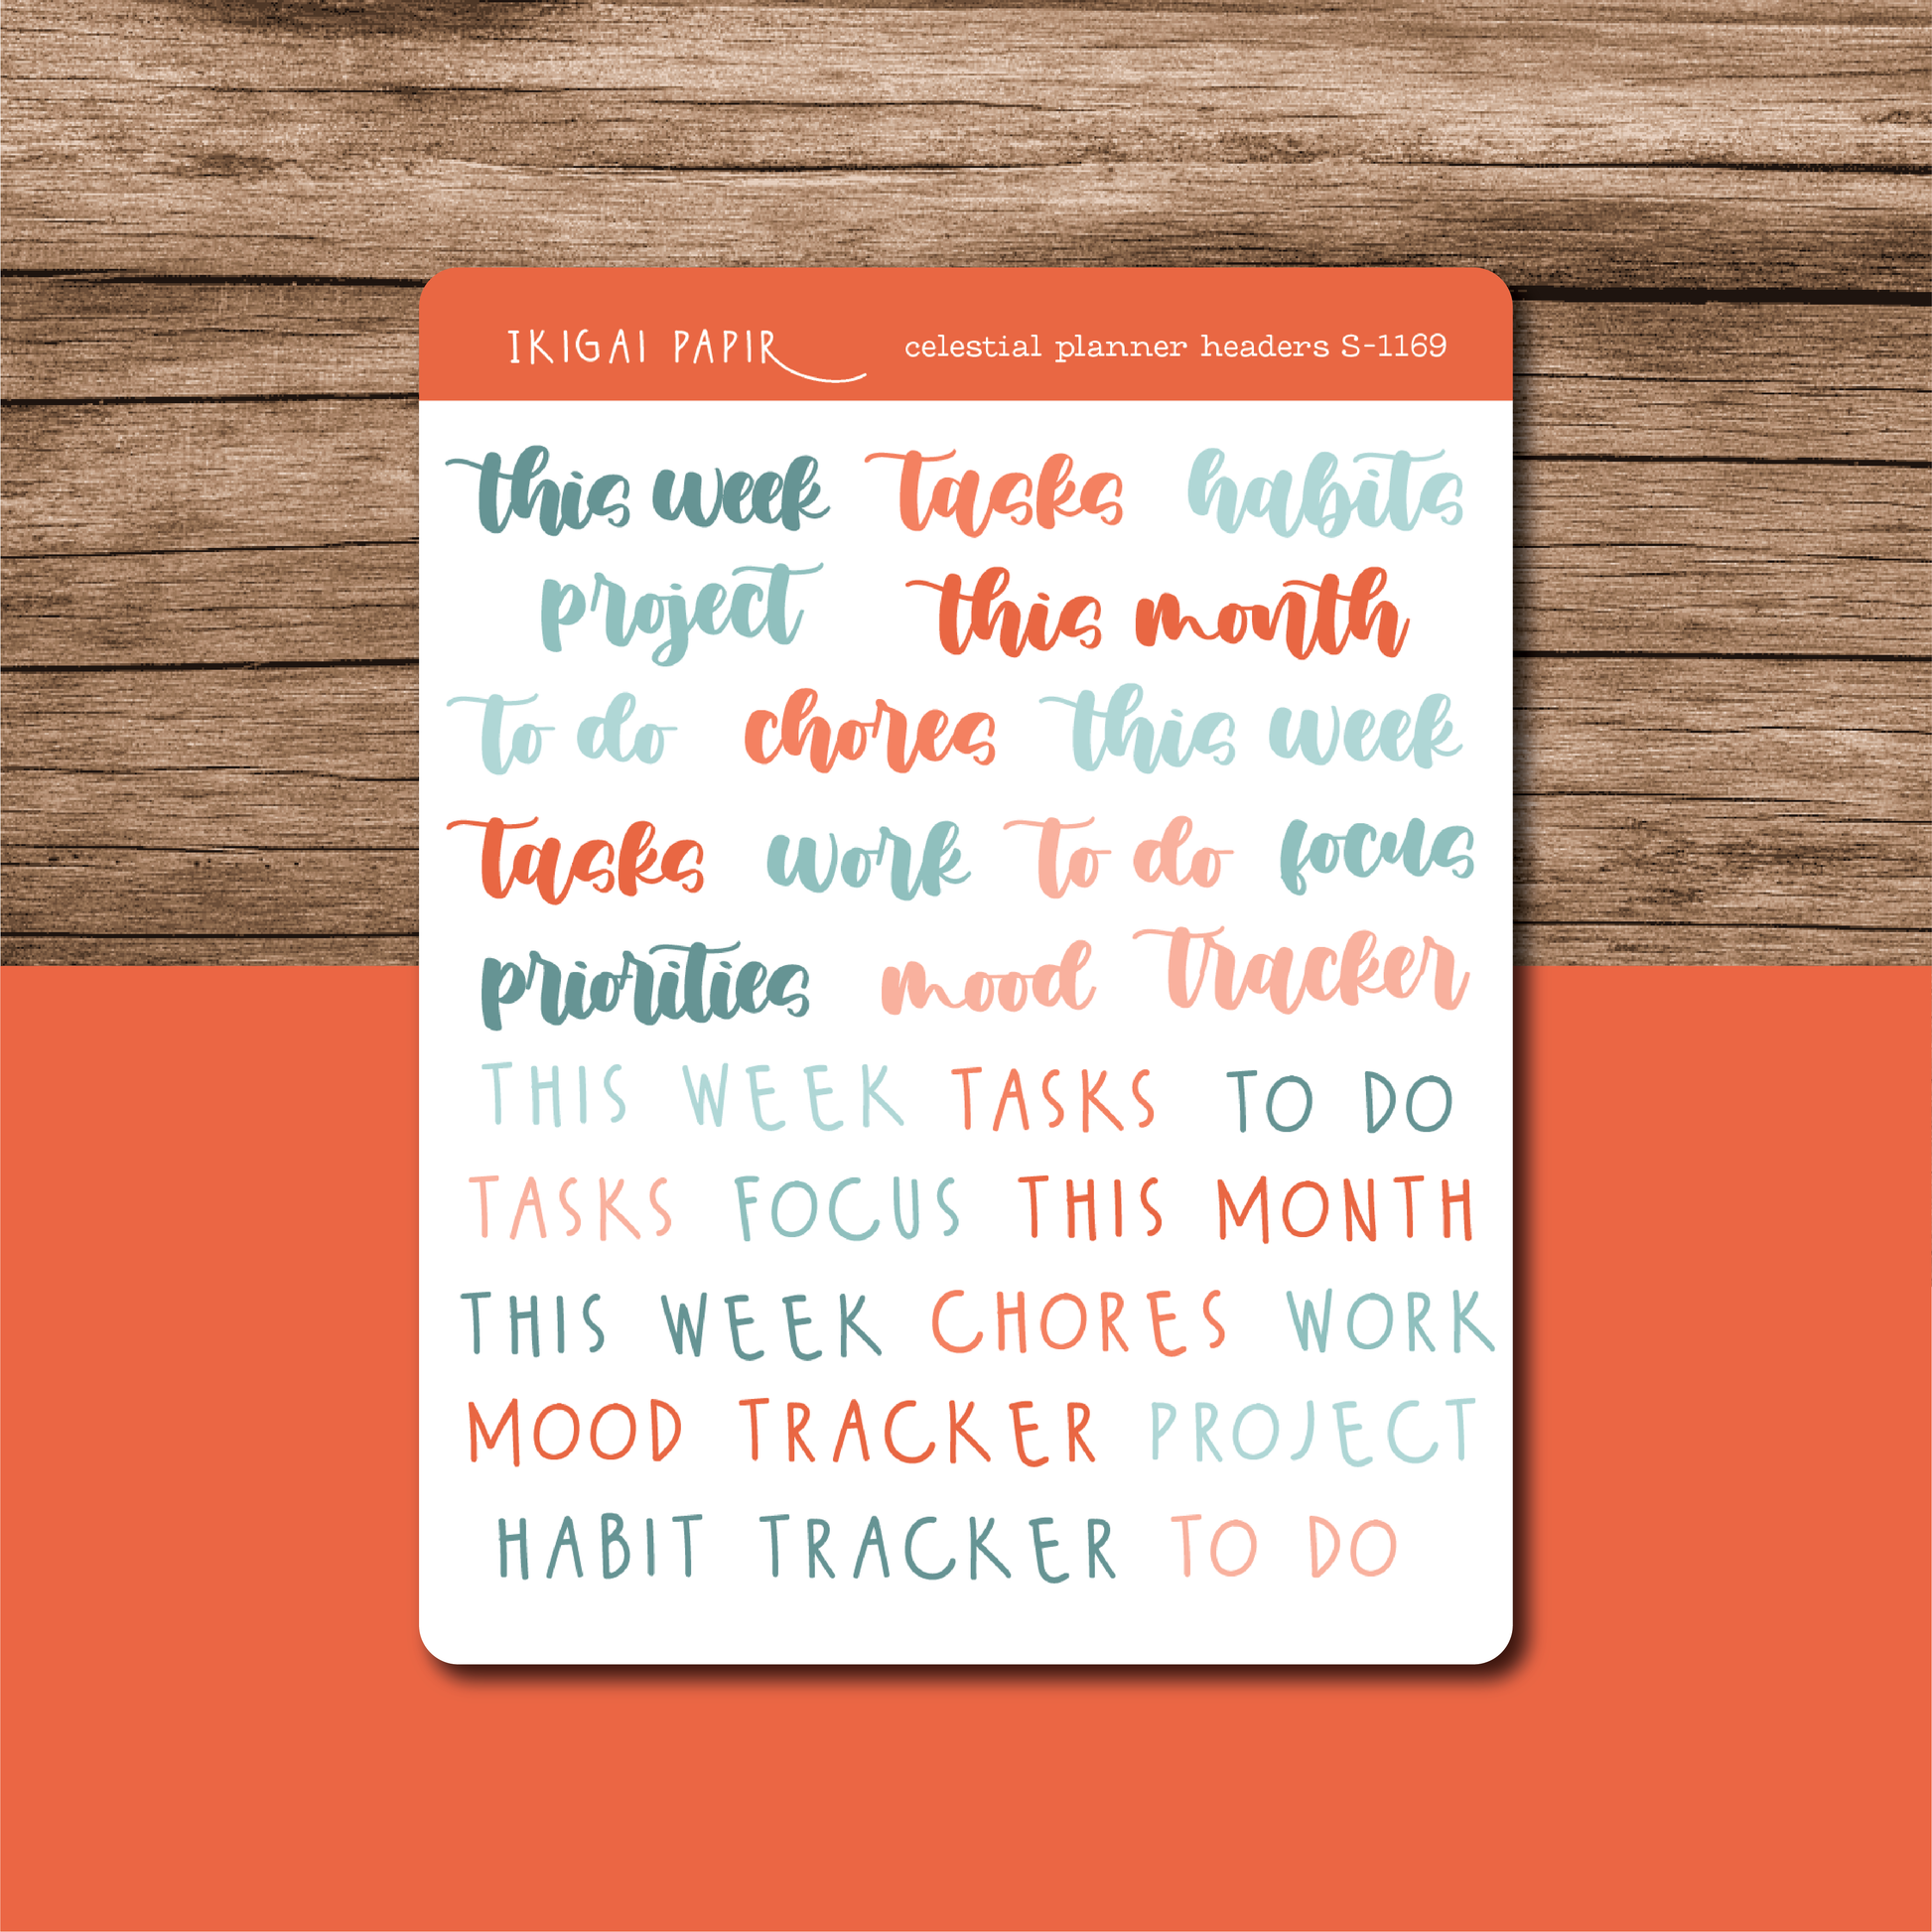 IKIGAI PAPIR celestial planner headers S-1169
this week tasks habits
project this month
to do chores this week
tasks work to do focus
priorities mood tracker
THIS WEEK TASKS TO DO
TASKS FOCUS THIS MONTH
THIS WEEK CHORES WORK
MOOD TRACKER PROJECT
HABIT TRACKER TO DO